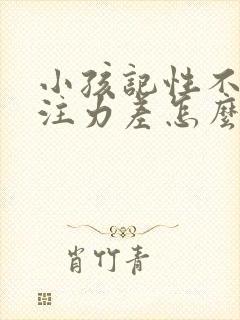 小孩記性不
注力差怎麼
肖竹青